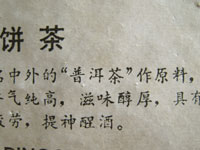 饼茶
名中外的“普洱茶”作原料,
气纯高，滋味醇厚，具有
疲劳，提神醒酒。